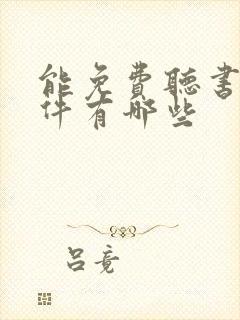 能免費聽書
件有哪些
吕竟